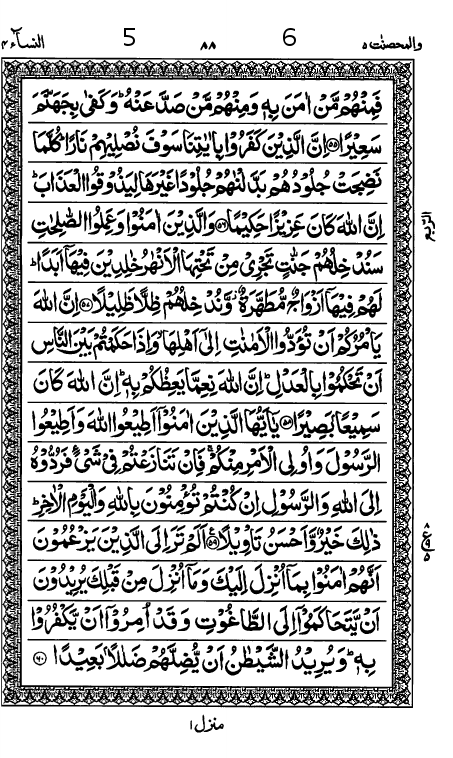 والمحصنٰت ٥ 6 ٨٨ 5 النسآء ٤
فَمِنْهُمْ مَّنْ اٰمَنَ بِهٖ وَمِنْهُمْ مَّنْ صَدَّ عَنْهُ ؕ وَكَفٰى بِجَهَنَّمَ
سَعِيْرًا ﴿٥٥﴾ اِنَّ الَّذِيْنَ كَفَرُوْا بِاٰيٰتِنَا سَوْفَ نُصْلِيْهِمْ نَارًا ؕ كُلَّمَا
نَضِجَتْ جُلُوْدُهُمْ بَدَّلْنٰهُمْ جُلُوْدًا غَيْرَهَا لِيَذُوْقُوا الْعَذَابَ ؕ
اِنَّ اللّٰهَ كَانَ عَزِيْزًا حَكِيْمًا ﴿٥٦﴾ وَالَّذِيْنَ اٰمَنُوْا وَعَمِلُوا الصّٰلِحٰتِ
سَنُدْخِلُهُمْ جَنّٰتٍ تَجْرِيْ مِنْ تَحْتِهَا الْاَنْهٰرُ خٰلِدِيْنَ فِيْهَاۤ اَبَدًا ؕ
لَهُمْ فِيْهَاۤ اَزْوَاجٌ مُّطَهَّرَةٌ ؗ وَّنُدْخِلُهُمْ ظِلًّا ظَلِيْلًا ﴿٥٧﴾ اِنَّ اللّٰهَ
يَاْمُرُكُمْ اَنْ تُؤَدُّوا الْاَمٰنٰتِ اِلٰۤى اَهْلِهَا ۙ وَاِذَا حَكَمْتُمْ بَيْنَ النَّاسِ
اَنْ تَحْكُمُوْا بِالْعَدْلِ ؕ اِنَّ اللّٰهَ نِعِمَّا يَعِظُكُمْ بِهٖ ؕ اِنَّ اللّٰهَ كَانَ
سَمِيْعًۢا بَصِيْرًا ﴿٥٨﴾ يٰۤاَيُّهَا الَّذِيْنَ اٰمَنُوْۤا اَطِيْعُوا اللّٰهَ وَاَطِيْعُوا
الرَّسُوْلَ وَاُولِى الْاَمْرِ مِنْكُمْ ۚ فَاِنْ تَنَازَعْتُمْ فِيْ شَيْءٍ فَرُدُّوْهُ
اِلَى اللّٰهِ وَالرَّسُوْلِ اِنْ كُنْتُمْ تُؤْمِنُوْنَ بِاللّٰهِ وَالْيَوْمِ الْاٰخِرِ ؕ
ذٰلِكَ خَيْرٌ وَّاَحْسَنُ تَاْوِيْلًا ﴿٥٩﴾ اَلَمْ تَرَ اِلَى الَّذِيْنَ يَزْعُمُوْنَ
اَنَّهُمْ اٰمَنُوْا بِمَاۤ اُنْزِلَ اِلَيْكَ وَمَاۤ اُنْزِلَ مِنْ قَبْلِكَ يُرِيْدُوْنَ
اَنْ يَّتَحَاكَمُوْۤا اِلَى الطَّاغُوْتِ وَقَدْ اُمِرُوْۤا اَنْ يَّكْفُرُوْا
بِهٖ ؕ وَيُرِيْدُ الشَّيْطٰنُ اَنْ يُّضِلَّهُمْ ضَلٰلًۢا بَعِيْدًا ﴿٦٠﴾
الربع
٨
ع
٥
منزل ١